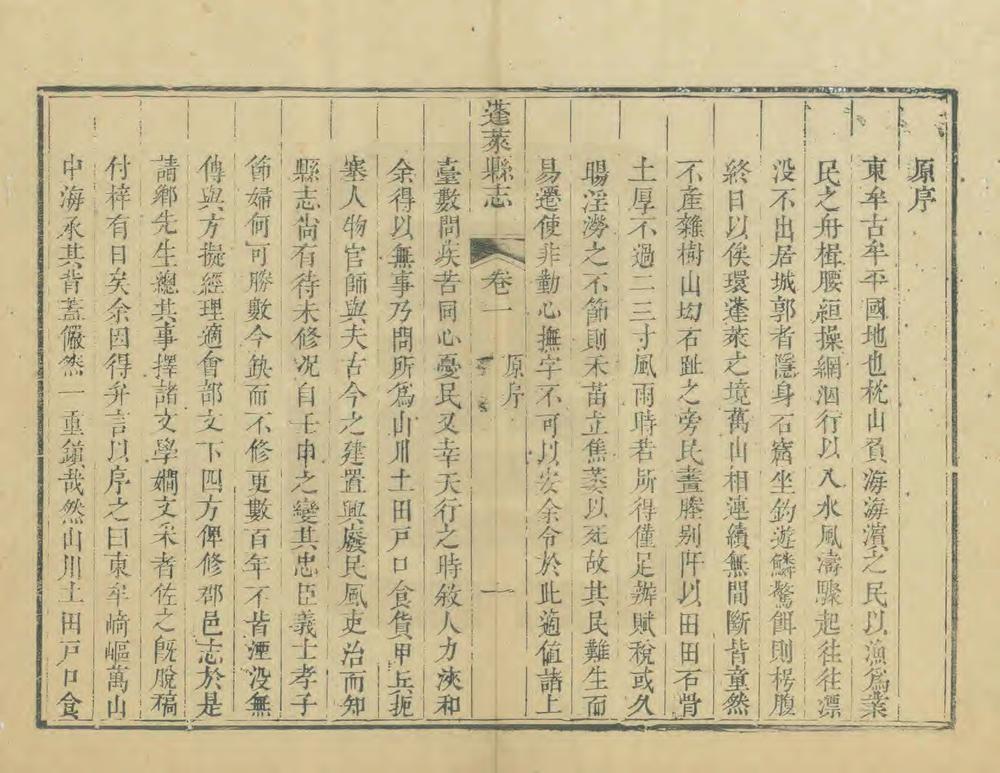 原序
東牟古牟平國地也枕山負海海濵之民以漁爲業
民之舟楫腰絙操網泅行以入水風濤驟起往往漂
没不出居城郭者隱身石窟坐釣遊鱗驚餌則枵腹
終日以俟環蓬萊之境萬山相連續無間斷皆童然
不産雜樹山㘭石趾之旁民畫塍别阡以田田石骨
土厚不過二三寸風雨時若所得僅足辦賦稅或久
暘淫澇之不節則禾苗立焦萎以死故其民難生而
易遷使非勤心撫字不可以安余令於此適值諸上
蓬萊縣志
卷一
原序
一
臺數問疾苦同心憂民又幸天行之時敘人力浹和
余得以無事乃問所爲山川土田戸口食貨甲兵扼
塞人物官師與夫古今之建置興廢民風吏治而知
縣志尚有待未修况自壬申之變其忠臣義士孝子
節婦何可勝數今缺而不修更數百年不皆湮没無
傳與方擬經理適會部文下四方俾修郡邑志於是
請鄉先生總其事擇諸文學嫺文采者佐之既脫稿
付梓有日矣余因得弁言以序之曰東牟崎嶇萬山
中海承其背蓋儼然一重鎮哉然山川土田戸口食